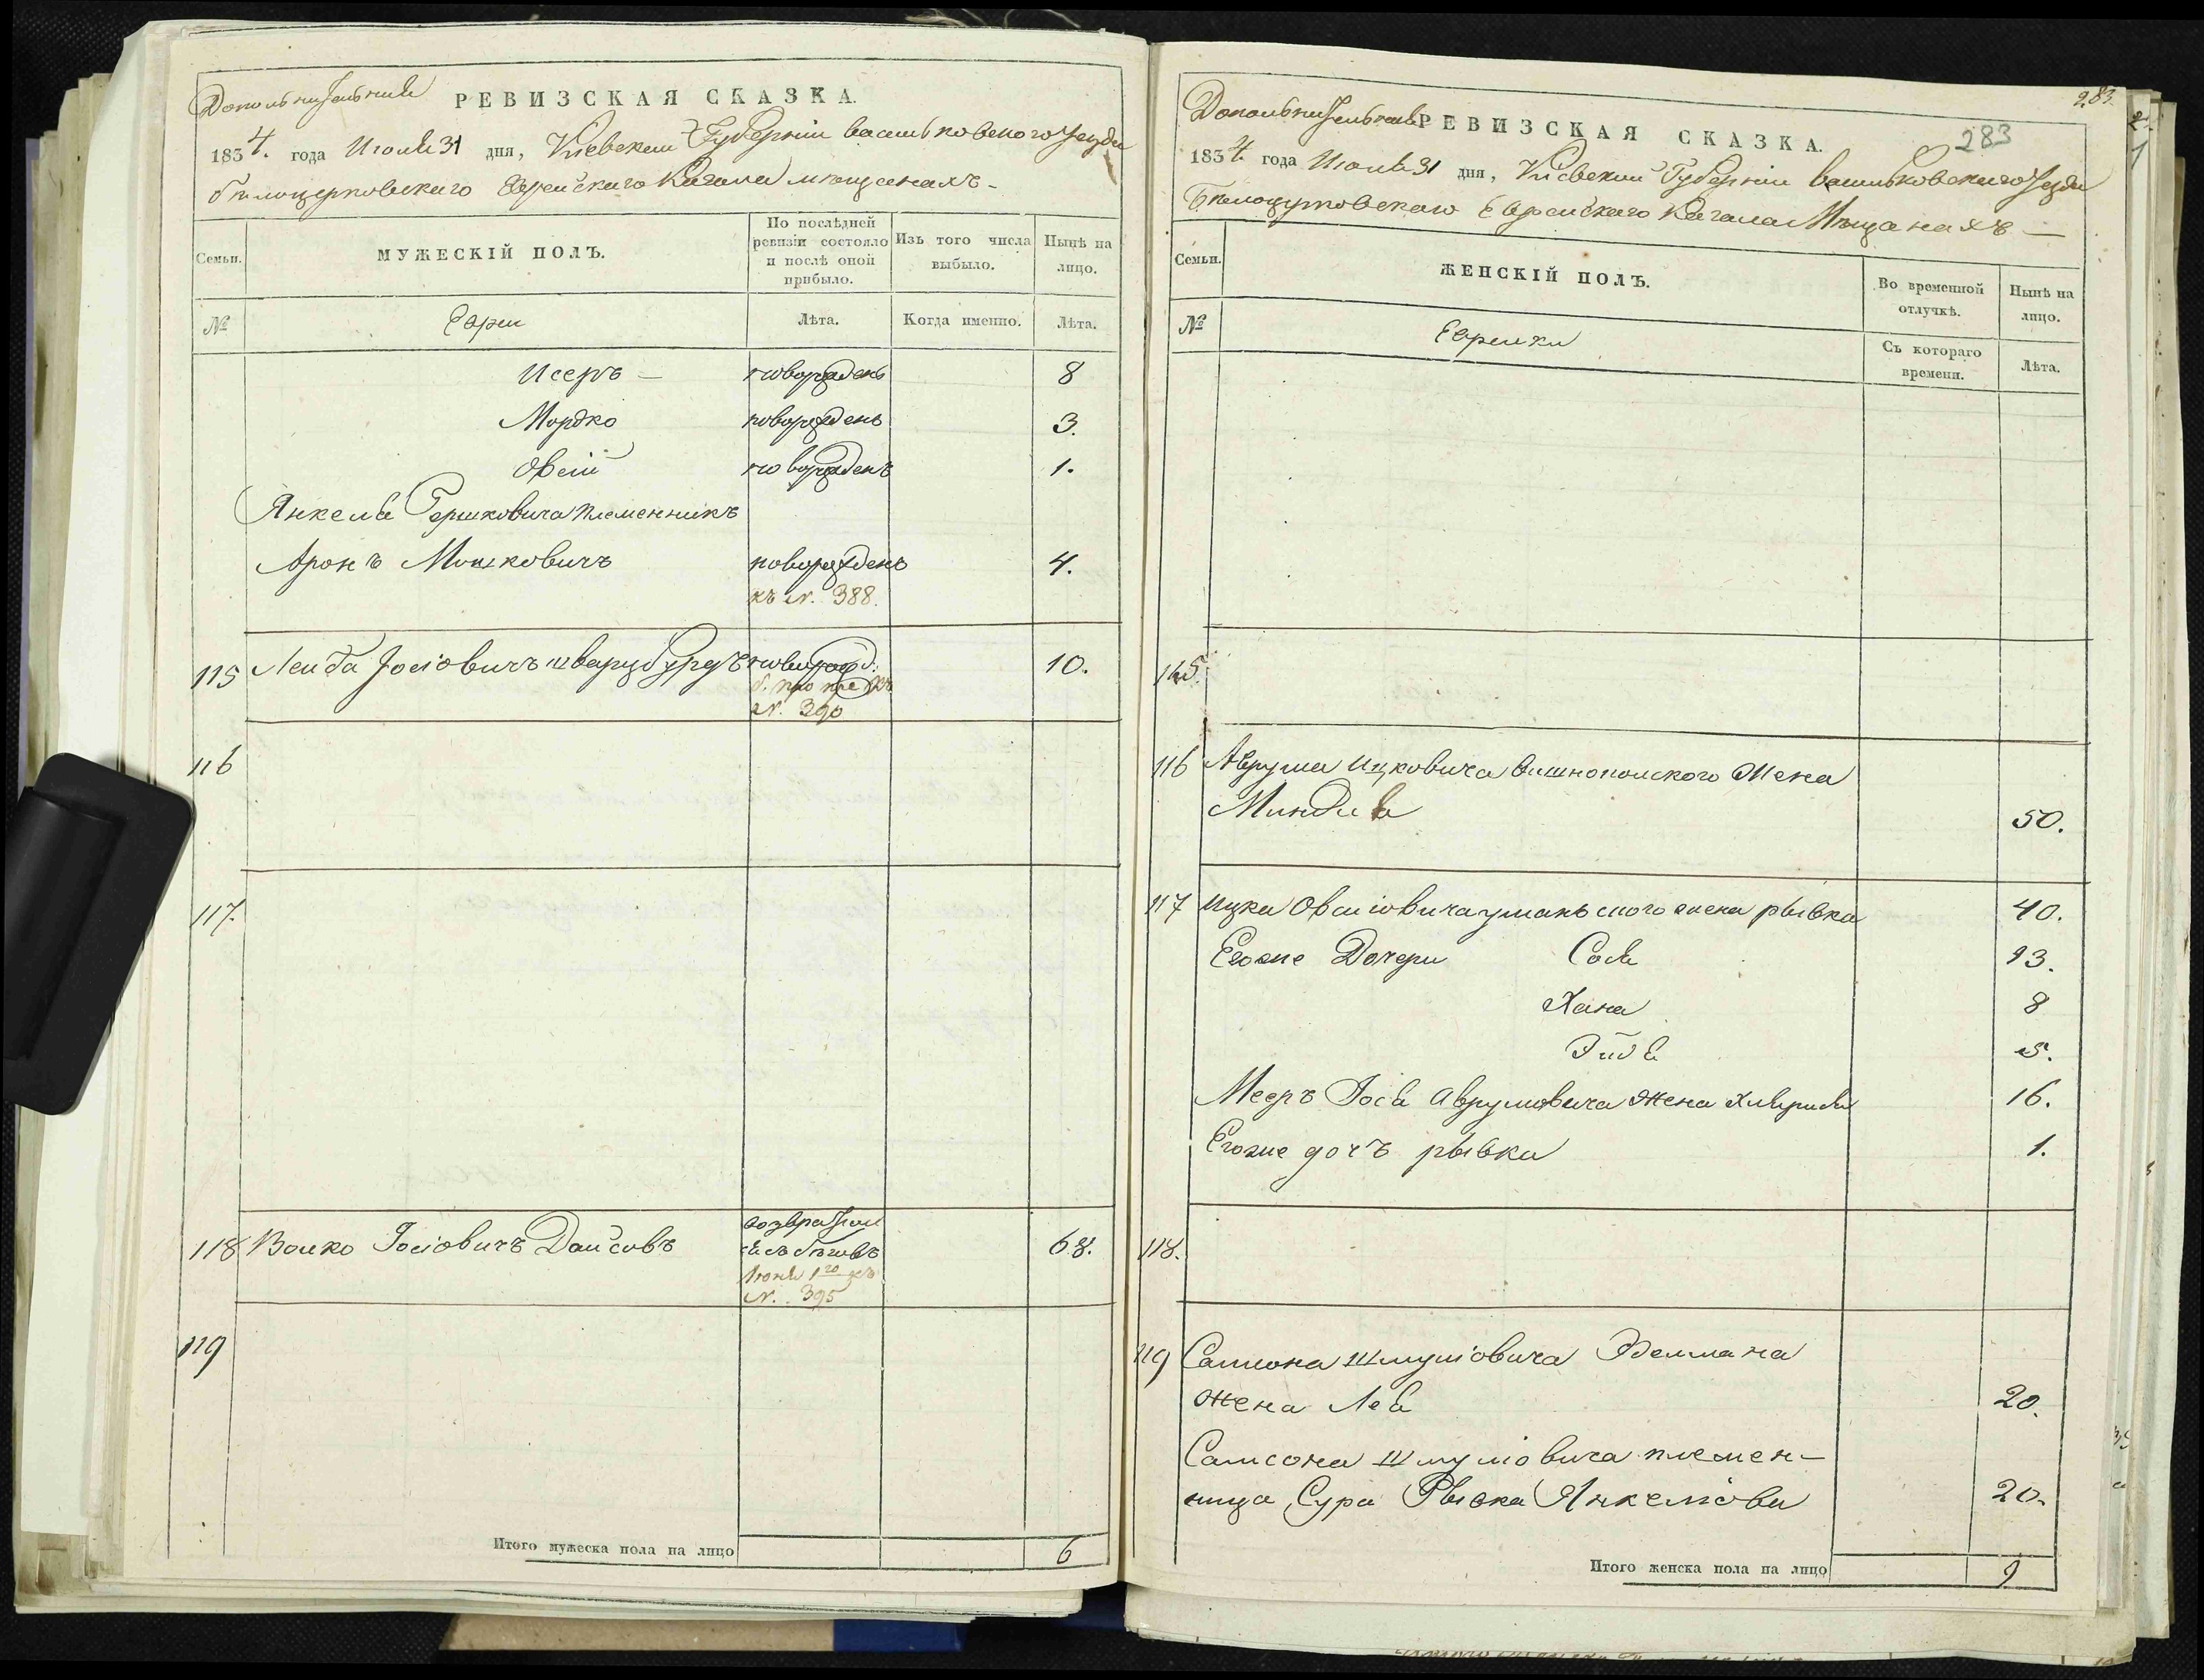 Дополнительная РЕВИЗСКАЯ СКАЗКА.
1834. года Июля 31 дня, Киевской Губерніи васильковского уезда
белоцерковского Еврейскаго Кагала мещанахъ -
Семьи.
МУЖЕСКІЙ ПОЛЪ.
По послѣдней ревизіи состояло и послѣ оной прибыло.
Изъ того числа выбыло.
Нынѣ на лицо.
№
Евреи
Лѣта.
Когда именно.
Лѣта.
Исеръ - новорожденъ 8
Мордко новорожденъ 3.
Овсій новорожденъ 1.
Янкеля Гершковича племенникъ
Аронъ Мошковичъ новорожденъ 4.
къ N. 388.
115 Лейба Іосіовичъ шварцбурдъ новорожд. 10.
N. 390
116
117.
118 Волко Іосіовичъ Дайсовъ возвратил 68.
съ бѣговъ
Июня 1го къ
N. 395
119
Итого мужеска пола на лицо 6
283
283
Дополнительная РЕВИЗСКАЯ СКАЗКА.
1834. года Июля 31 дня, Киевской Губерніи васильковскаго уезда
Белоцерковскаго Еврейскаго Кагала Мещанахъ —
Семьи.
ЖЕНСКІЙ ПОЛЪ.
Во временной отлучкѣ.
Нынѣ на лицо.
№
Еврейки
Съ котораго времени.
Лѣта.
115.
116 Аврума Ицковича вишнопольского Жена
Миндля 50.
117 Ицка Овсіовича уманьского жена рывка 40.
Егоже Дочери Сося 13.
Хана 8
Эйдя 5.
Мееръ Іося Аврумовича Жена 16.
Егоже дочъ рывка 1.
118.
119 Самсона Шмуліовича Эделмана
жена Лея 20.
Самсона Шмуліовича племен-
ница Сура Рывка Янкеліова 20.
Итого женска пола на лицо 9